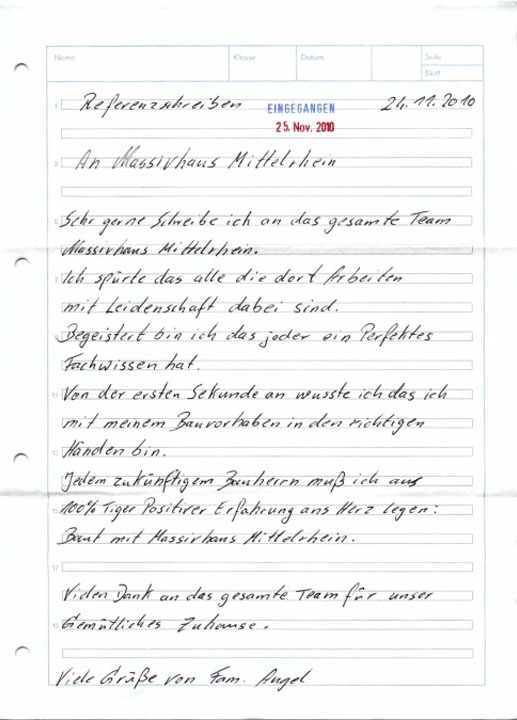 Name Klasse Datum Seite
Blatt
1 Referenzschreiben 24.11.2010
EINGEGANGEN
25. Nov. 2010
3 An Massivhaus Mittelrhein
5 Sehr gerne Schreibe ich an das gesamte Team
Massivhaus Mittelrhein.
7 Ich spürte das alle die dort Arbeiten
mit Leidenschaft dabei sind.
9 Begeistert bin ich das jeder ein Perfektes
Fachwissen hat.
11 Von der ersten Sekunde an wusste ich das ich
mit meinem Bauvorhaben in den richtigen
13 Händen bin.
Jedem zukünftigem Bauherrn muß ich aus
15 100% Tiger Positiver Erfahrung ans Herz legen:
Baut mit Massivhaus Mittelrhein.
17
Vielen Dank an das gesamte Team für unser
19 Gemütliches Zuhause.
Viele Grüße von Fam. Angel